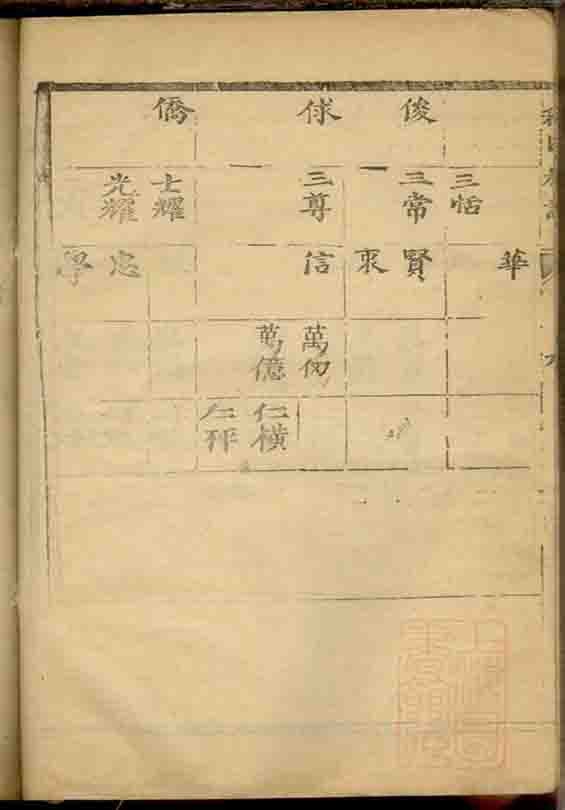 俊
俅
僑
三恬
三常
三尊
士耀
光耀
華
賢
衷
信
忠
學
萬仞
萬億
仁橫